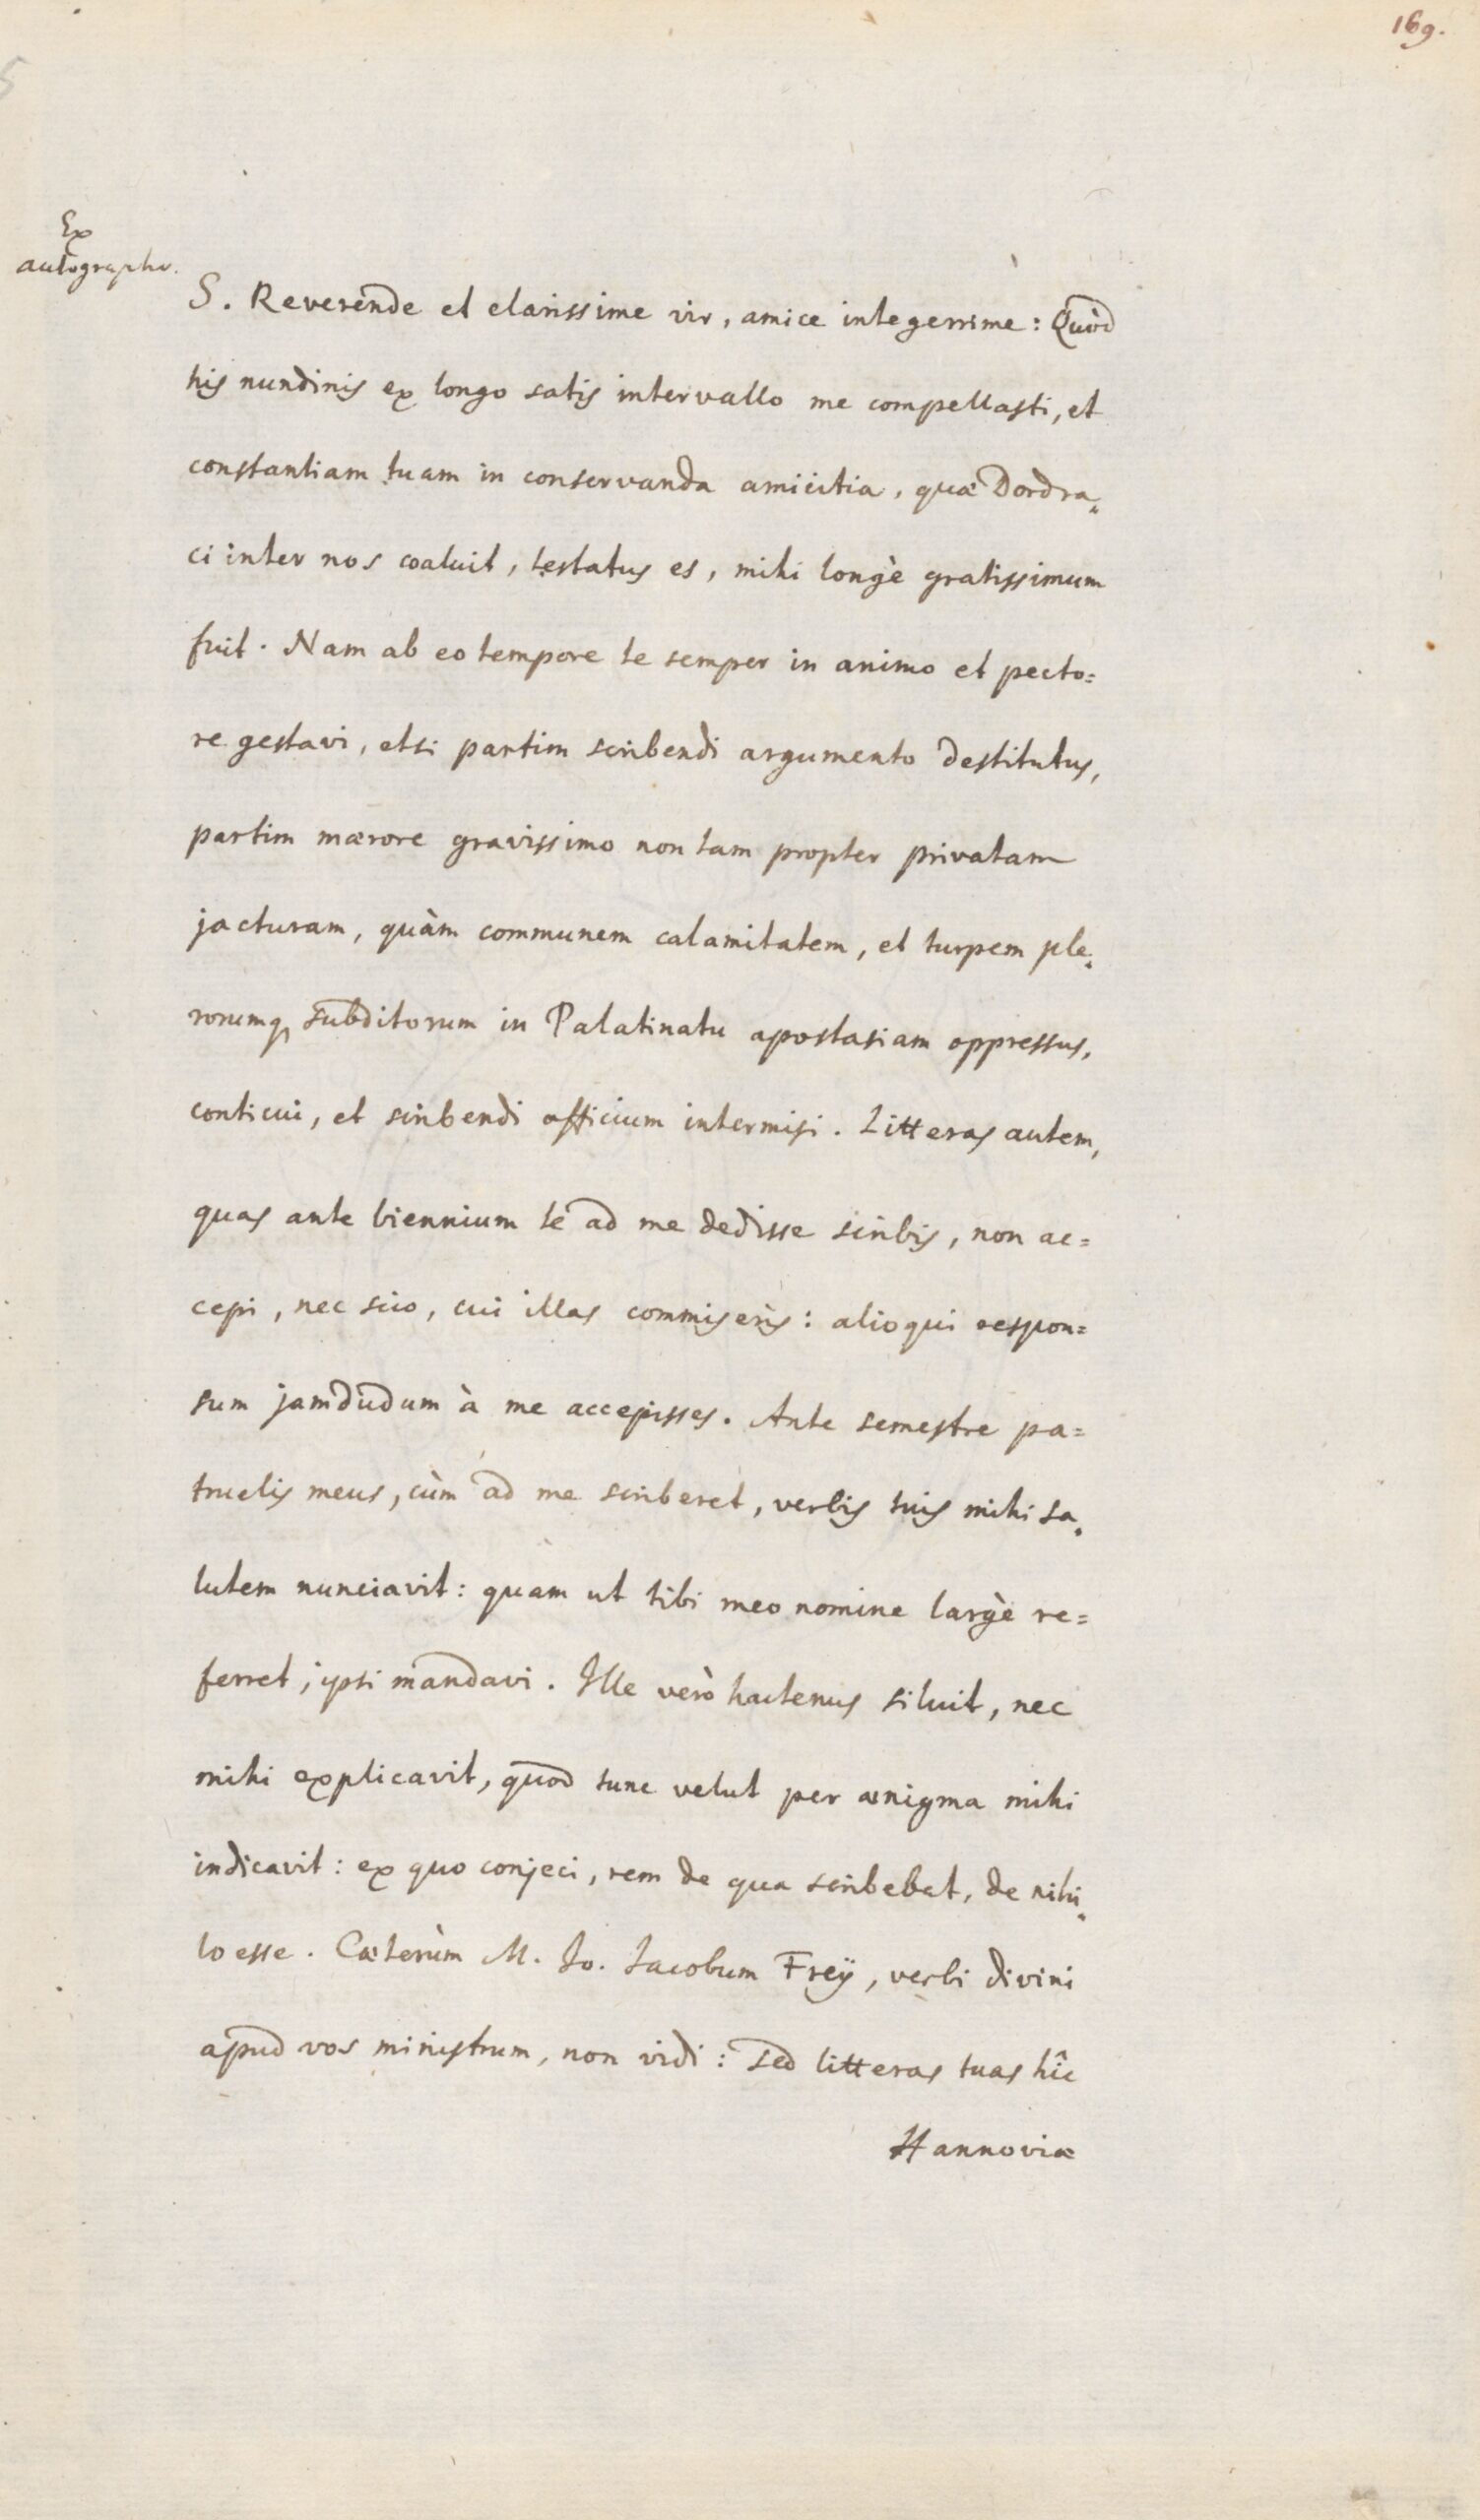 169.
Ex
autographo.
S. Reverende et clarissime vir, amice integerrime: Quòd
his nundinis ex longo satis intervallo me compellasti, et
constantiam tuam in conservanda amicitia, quæ Dordra„
ci inter nos coaluit, testatus es, mihi longè gratissimum
fuit. Nam ab eo tempore te semper in animo et pecto=
re gestavi, etsi partim scribendi argumento destitutus,
partim mærore gravissimo non tam propter privatam
jacturam, quàm communem calamitatem, et turpem ple„
rorumq, subditorum in Palatinatu apostasiam oppressus,
conticui, et scribendi officium intermisi. Litteras autem,
quas ante biennium te ad me dedisse scribis, non ac=
cepi, nec scio, cui illas commiseris: alioqui respon=
sum jamdudum à me accepisses. Ante semestre pa=
truelis meus, cùm ad me scriberet, verbis tuis mihi sa„
lutem nunciavit: quam ut tibi meo nomine largè re=
ferret, ipsi mandavi. Ille verò hactenus siluit, nec
mihi explicavit, quod tunc velut per ænigma mihi
indicavit: ex quo conjeci, rem de qua scribebat, de nihi„
lo esse. Cæterùm M. Jo. Jacobum Freÿ, verbi divini
apud vos ministrum, non vidi: sed litteras tuas hîc
Hannoviæ